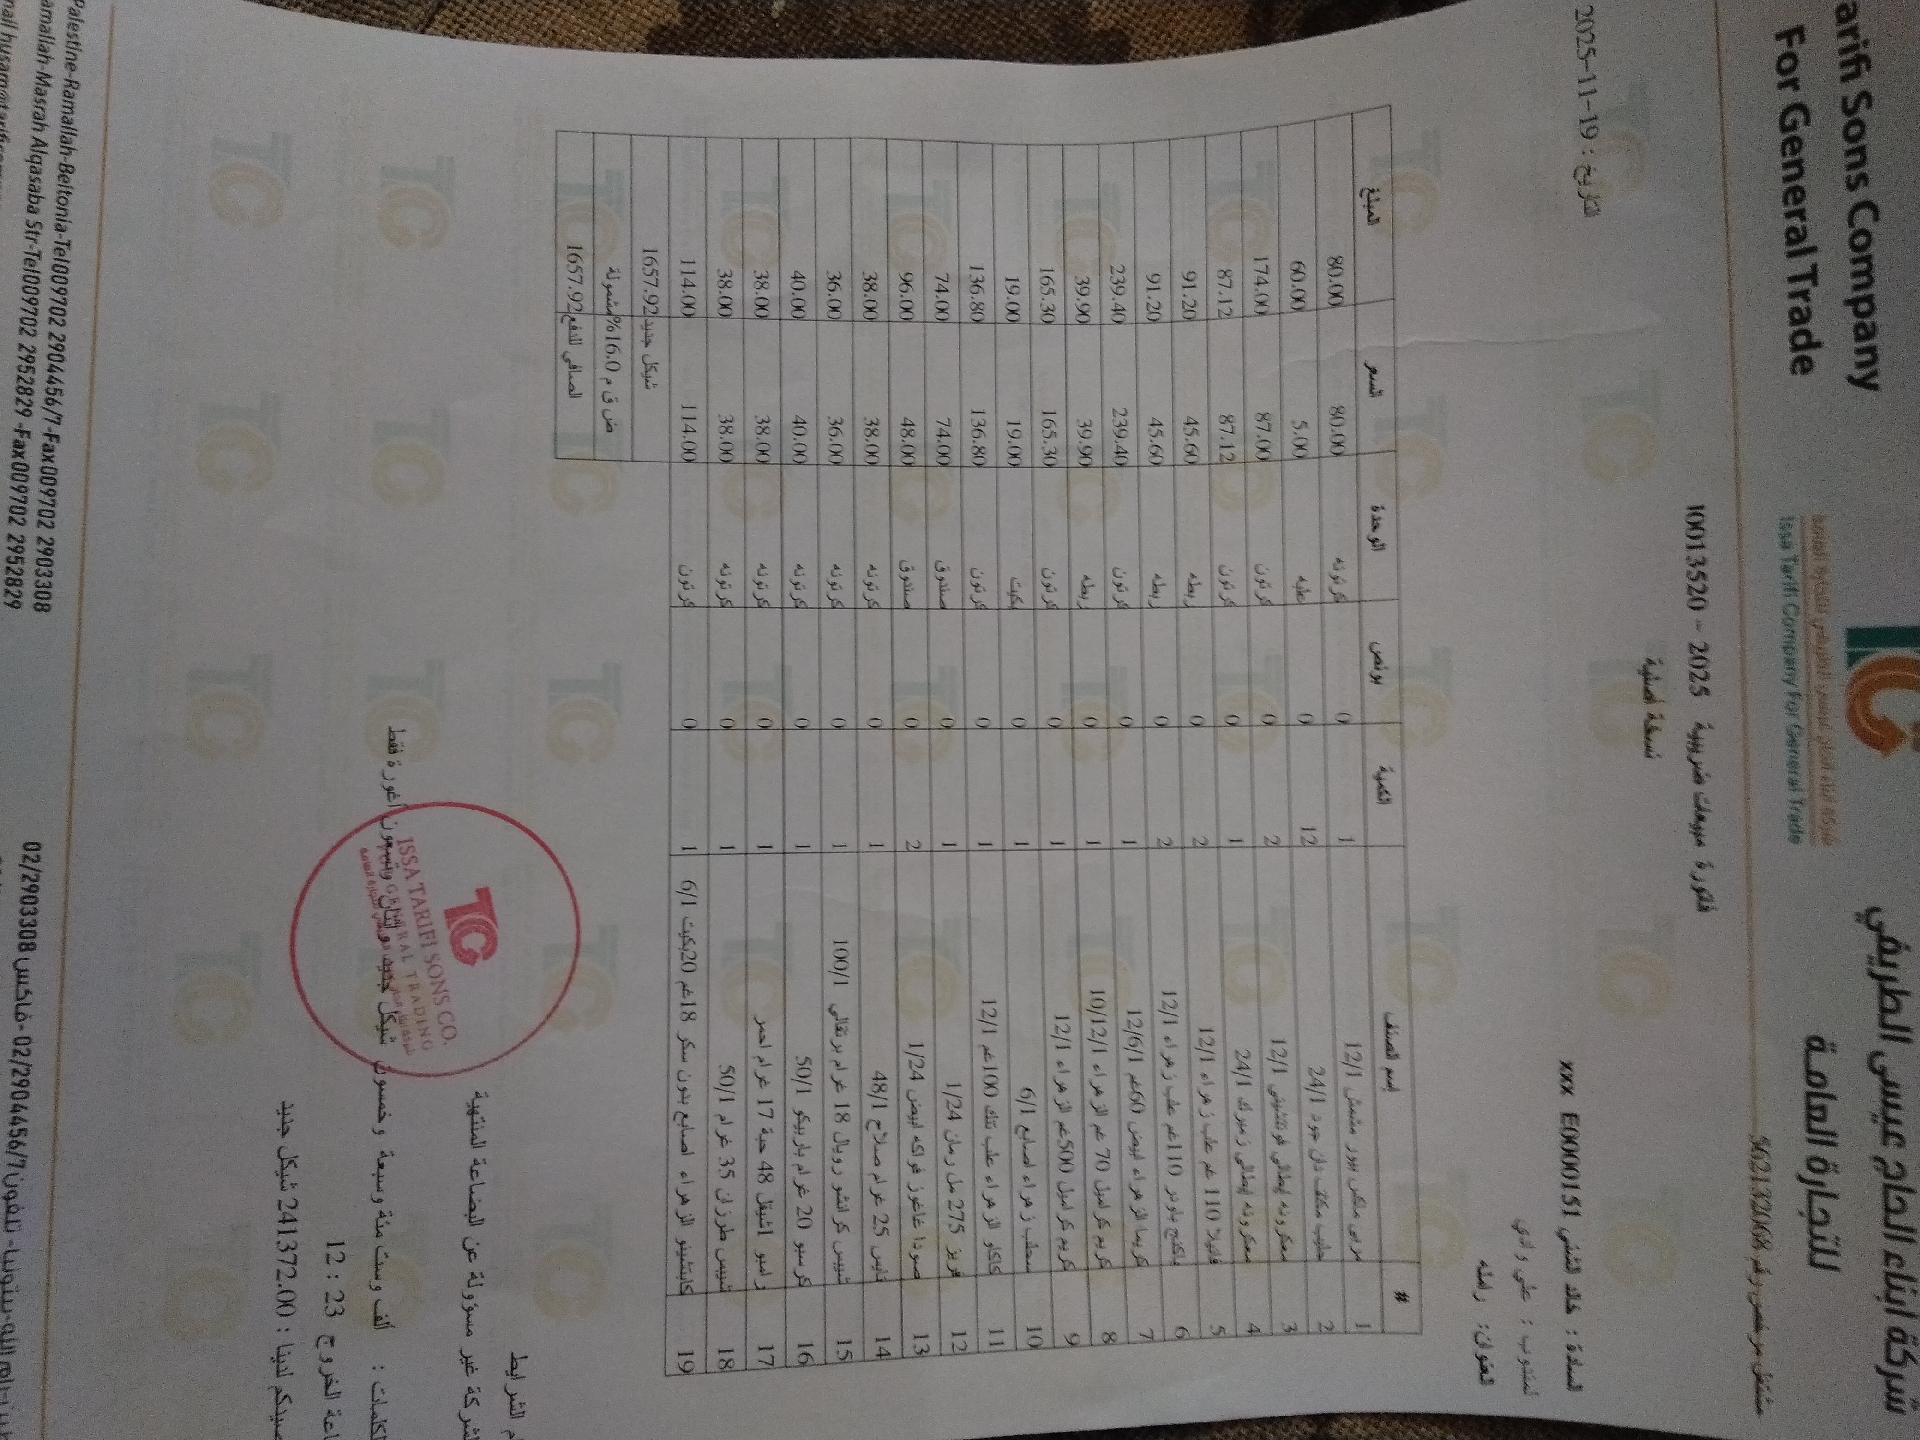 arifi Sons Company
For General Trade
Issa Tarifi Company For General Trade
شركة ابناء الحاج عيسى الطريفي
للتجارة العامة
مشتغل مرخص رقم 562132068
فاتورة مبيعات ضريبية 2025 - 10013520
نسخة أصلية
التاريخ : 19-11-2025
السادة : خالد التنتي E0000151 xxx
المندوب : علي وادي
العنوان: رام الله
# إسم الصنف الكمية بونص الوحدة السعر المبلغ
1 مربى ملكي بيور مشمش 12/1 1 0 كرتونه 80.00 80.00
2 حليب مكثف دان جود 24/1 12 0 علبه 5.00 60.00
3 معكرونه إيطالي فونتانيني 12/1 2 0 كرتون 87.00 174.00
4 معكرونه إيطالي زميرك 24/1 1 0 كرتون 87.12 87.12
5 فانيلا 110 غم علب زهراء 12/1 2 0 ربطه 45.60 91.20
6 باكنج باودر 110غم علب زهراء 12/1 2 0 ربطه 45.60 91.20
7 كريما الزهراء ابيض 60غم 12/6/1 1 0 كرتون 239.40 239.40
8 كريم كرامبل 70 غم الزهراء 10/12/1 1 0 ربطه 39.90 39.90
9 كريم كرامبل 500غم الزهراء 12/1 1 0 كرتون 165.30 165.30
10 سحلب زهراء اصابع 6/1 1 0 بكيت 19.00 19.00
11 كاكاو الزهراء علب تنك 100غم 12/1 1 0 كرتون 136.80 136.80
12 فريز 275 مل رمان 1/24 1 0 صندوق 74.00 74.00
13 صودا غاغوز فواكه ابيض 1/24 2 0 صندوق 48.00 96.00
14 تايس 25 غرام صلاح 48/1 1 0 كرتونه 38.00 38.00
15 شيبس كرانشو رويال 18 غرام برتقالي 100/1 1 0 كرتونه 36.00 36.00
16 كرسبو 20 غرام باربيكو 50/1 1 0 كرتونه 40.00 40.00
17 رامبو اشيقل 48 حبة 17 غرام احمر 1 0 كرتونه 38.00 38.00
18 شيبس طرزان 35 غرام 50/1 1 0 كرتونه 38.00 38.00
19 كابتشينو الزهراء اصابع بدون سكر 18غم 20بكيت 6/1 1 0 كرتون 114.00 114.00
شيكل جديد 1657.92
ض ق م 16.0% مشمولة
الصافي للدفع 1657.92
م الشرايط
الشركة غير مسؤولة عن البضاعة المنتهية
الكلمات : ألف وست مئة وسبعة وخمسون شيكل جديد و إثنان وتسعون أغورة فقط
اعة الخروج 23 : 12
صيدكم لدينا : 241372.00 شيكل جديد
TC
ISSA TARIFI SONS CO.
GENERAL TRADING
Palestine-Ramallah-Beitonia-Tel009702 2904456/7-Fax009702 2903308
amallah-Masrah Alqasaba Str-Tel009702 2952829 -Fax009702 2952829
رام الله-بيتونيا- تلفون 02/2904456/7 - فاكس 02/2903308